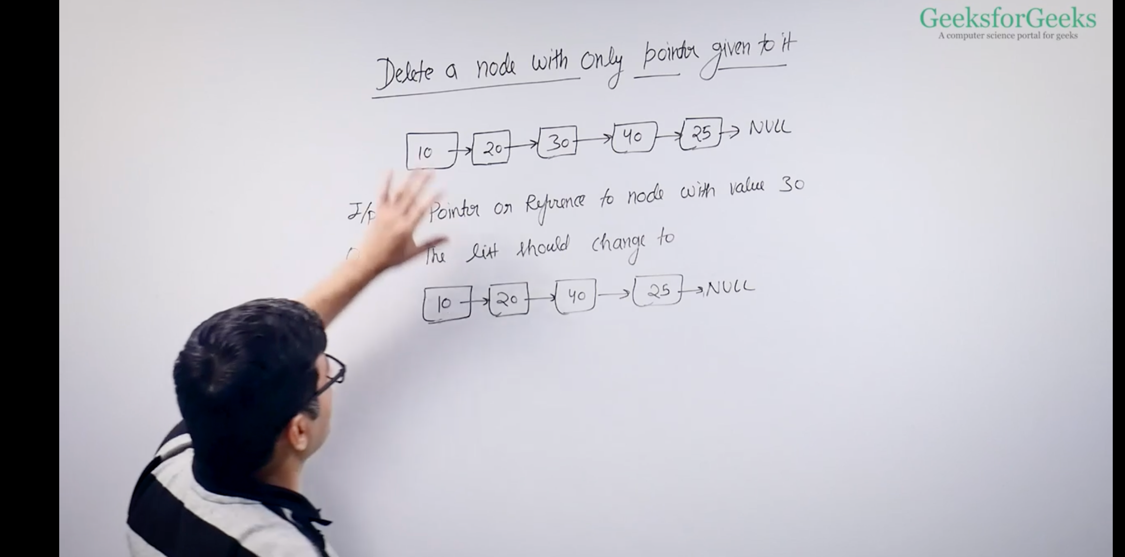 GeeksforGeeks
A computer science portal for geeks
Delete a node with only pointer given to it
10 → 20 → 30 → 40 → 25 → NULL
I/P Pointer or Reference to node with value 30
The list should change to
10 → 20 → 40 → 25 → NULL